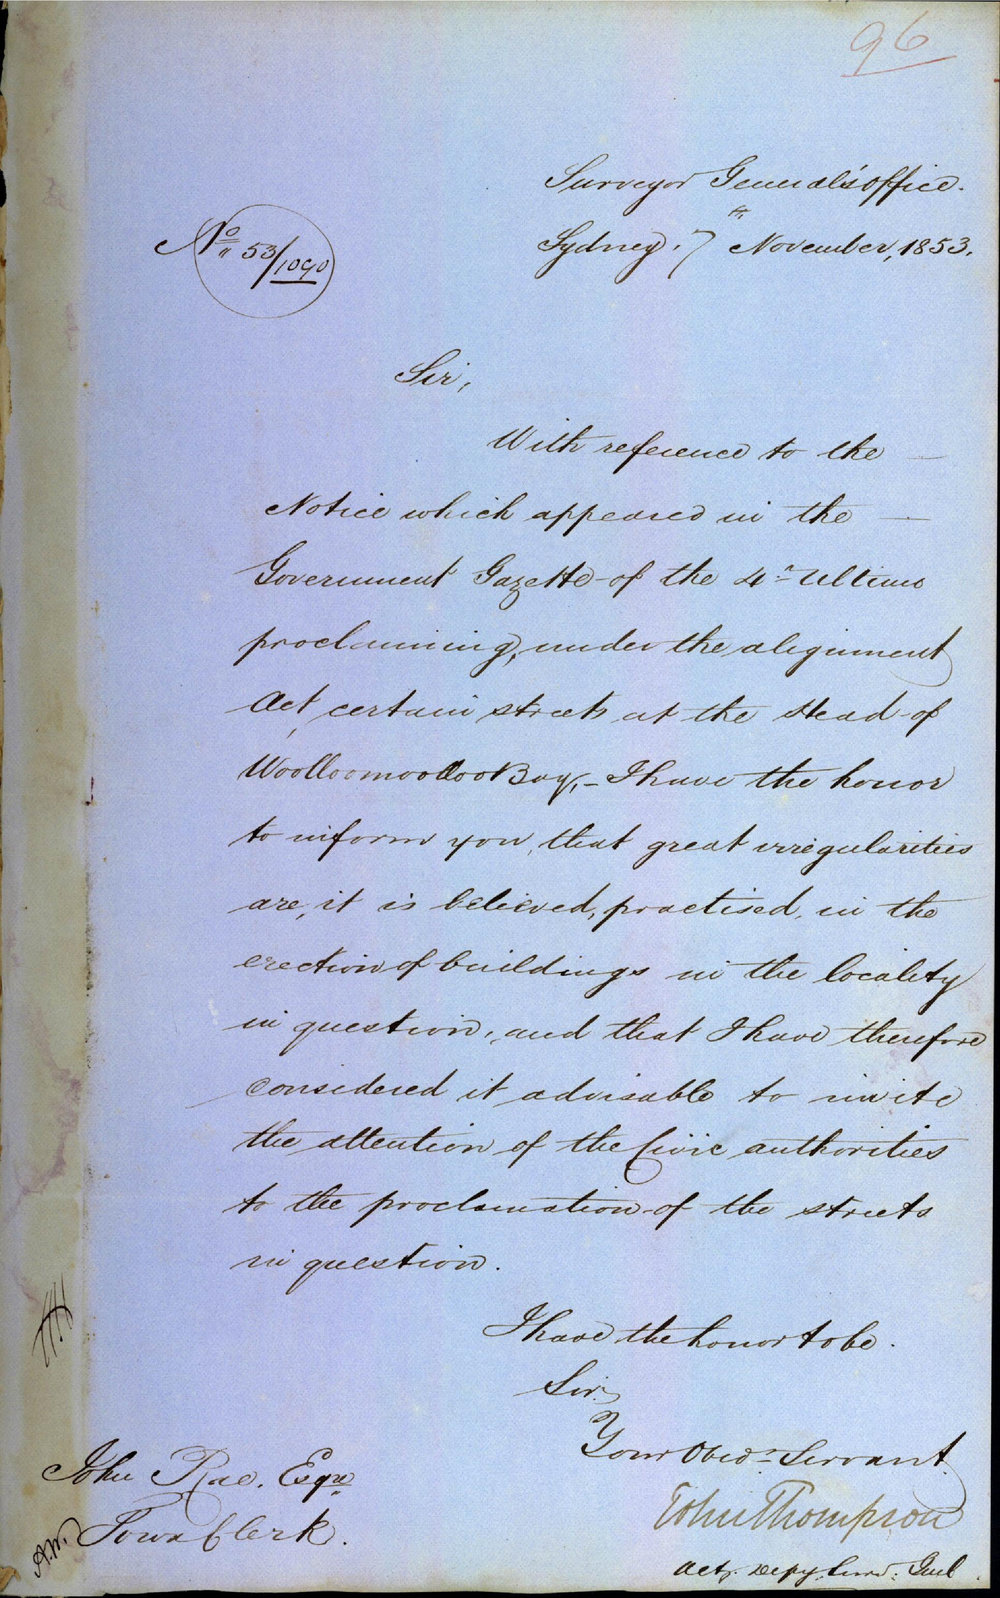 96
Surveyor General's Office.
Sydney, 7th November, 1853.
No 53/1090
Sir,
With reference to the
Notice which appeared in the
Government Gazette of the 4th Ultimo
proclaiming, under the alignment
Act, certain streets at the Head of
Woolloomoolloo Bay, - I have the honor
to inform you, that great irregularities
are, it is believed, practised, in the
erection of buildings in the locality
in question, and that I have therefore
considered it advisable to invite
the attention of the Civic authorities
to the proclamation of the streets
in question.
I have the honor to be.
Sir,
Your Obedt Servant
John Thompson
Actg. Depy. Surv: Genl
John Rae, Esqre
Town Clerk.
A.W.